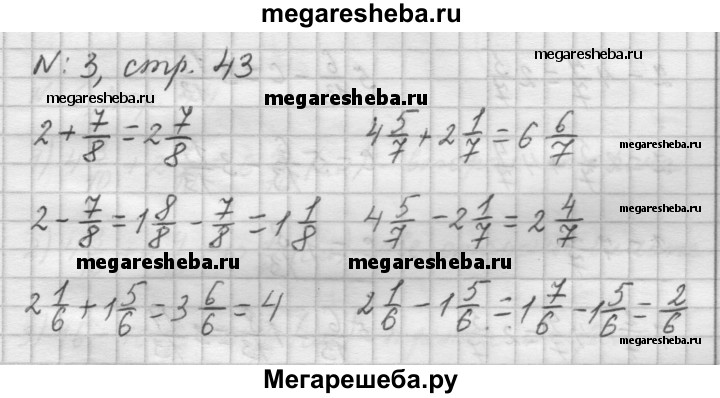 megaresheba.ru
№: 3, стр. 43
megaresheba.ru
megaresheba.ru
megaresheba.ru
2 + 7/8 = 2 7/8
4 5/7 + 2 1/7 = 6 6/7
megaresheba.ru
2 - 7/8 = 1 8/8 - 7/8 = 1 1/8
4 5/7 - 2 1/7 = 2 4/7
megaresheba.ru
megaresheba.ru
megaresheba.ru
2 1/6 + 1 5/6 = 3 6/6 = 4
2 1/6 - 1 5/6 = 1 7/6 - 1 5/6 = 2/6
megaresheba.ru
Мегарешеба.ру